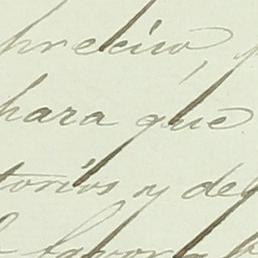 preciso, p
para que
torios y del
labor